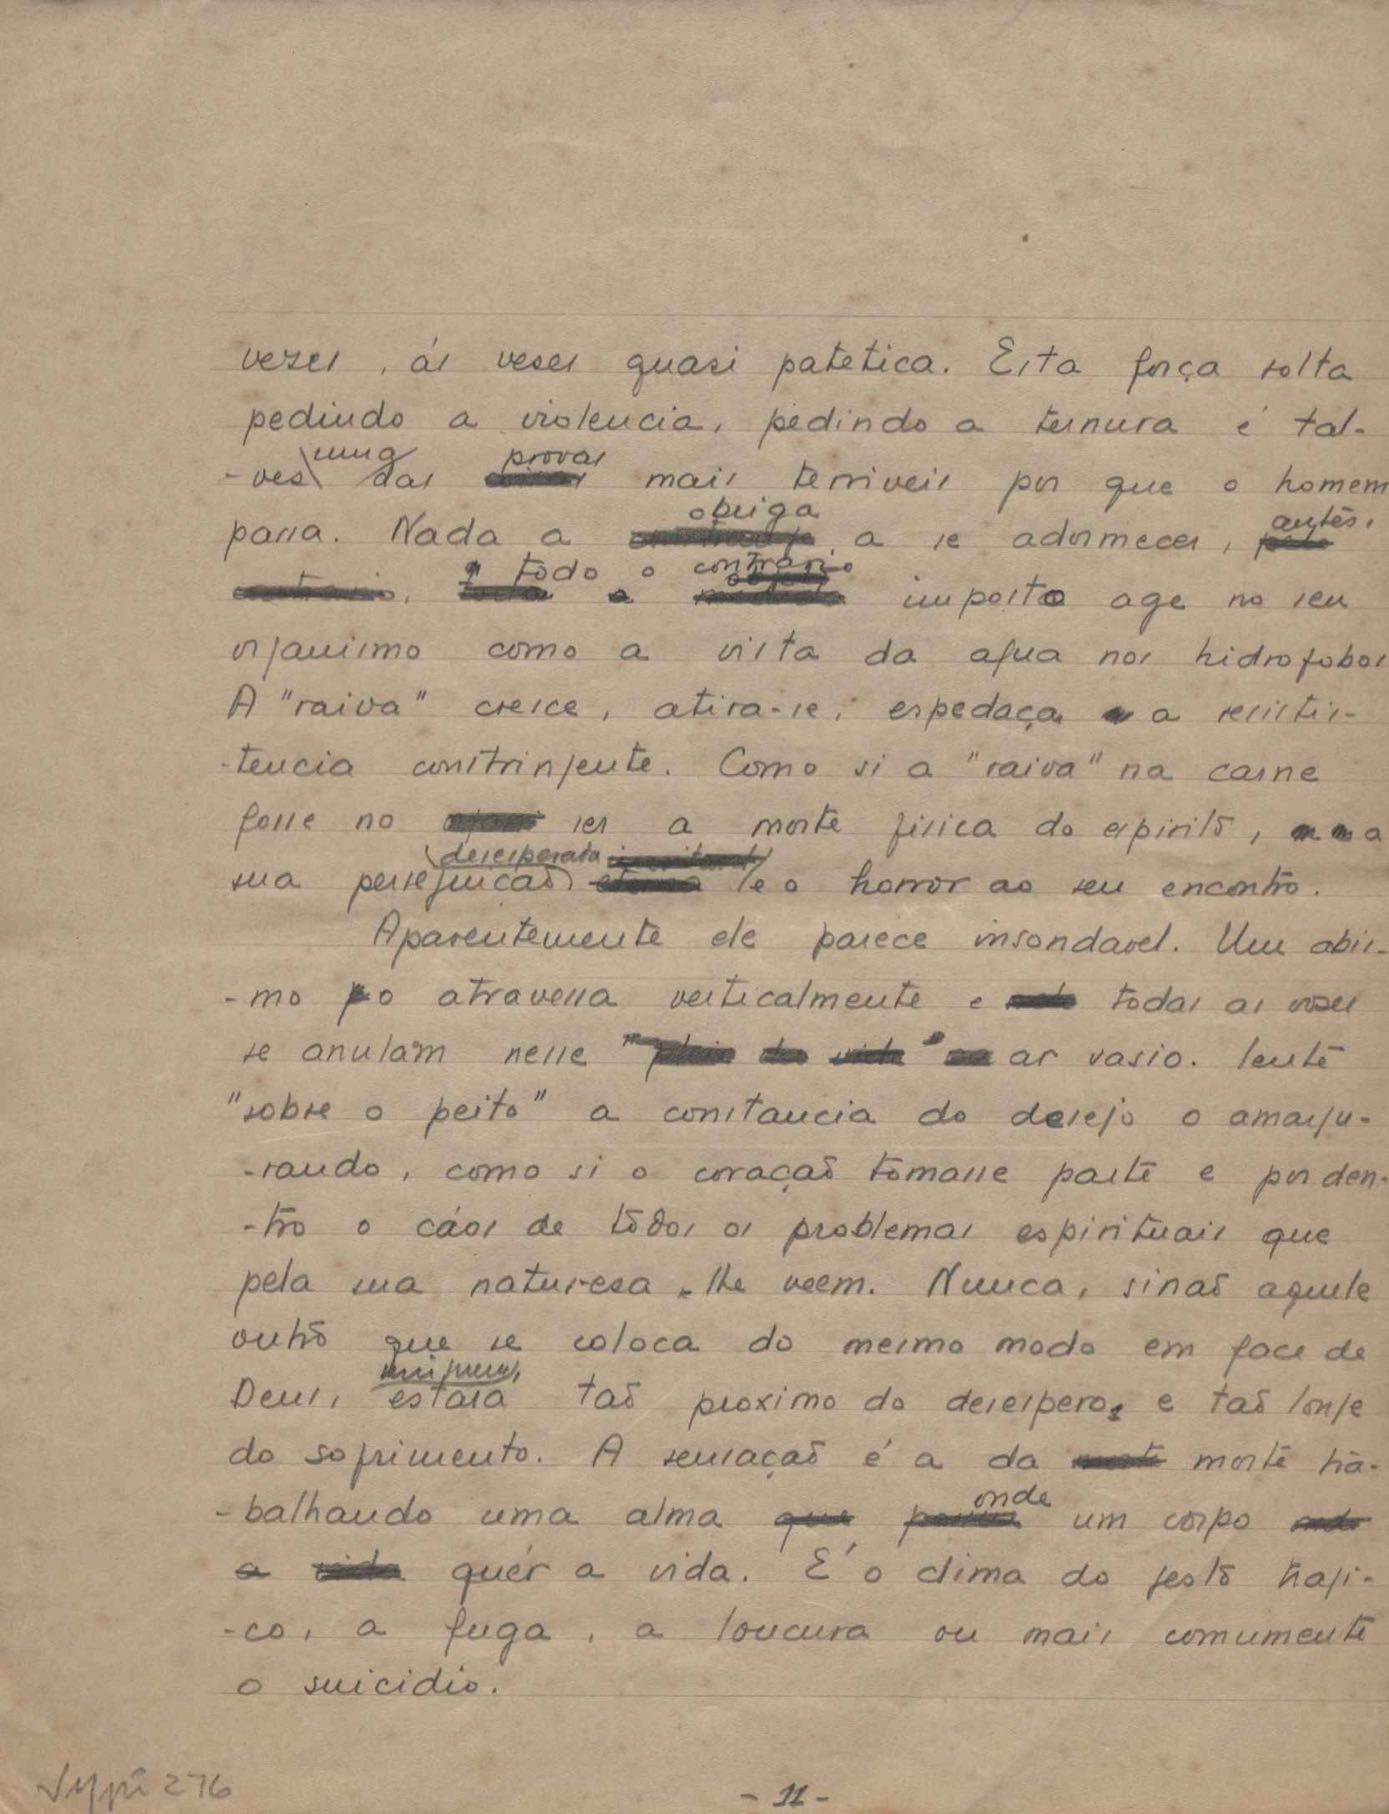 vezes, ás veses quasi patetica. Esta força solta
pedindo a violencia, pedindo a ternura é tal-
-ves uma das provas mais terriveis por que o homem
passa. Nada a obriga a se adormecer, antes,
todo o contrario imposto age no seu
organismo como a vista da agua nos hidrofobos
A "raiva" cresce, atira-se, espedaça a resistis-
-tencia constringente. Como si a "raiva" na carne
fosse no ser a morte fisica do espirito, a
sua perseguicaõ desesperada e o horror ao seu encontro.
Aparentemente ele parece insondavel. Um abis-
-mo o atravessa verticalmente e todas as vozes
se anulam nesse ar vasio. Sente
"sobre o peito" a constancia do desejo o amargu-
-rando, como si o coraçaõ tomasse parte e por den-
-tro o cáos de todos os problemas espirituais que
pela sua naturesa lhe veem. Nunca, sinaõ aquele
outro que se coloca do mesmo modo em face de
Deus, estará taõ proximo do desespero e taõ longe
do sofrimento. A sensaçaõ é a da morte tra-
-balhando uma alma onde um corpo
quér a vida. E' o clima do gesto tragi-
-co, a fuga, a loucura ou mais comumente
o suicidio.
276
- 11 -